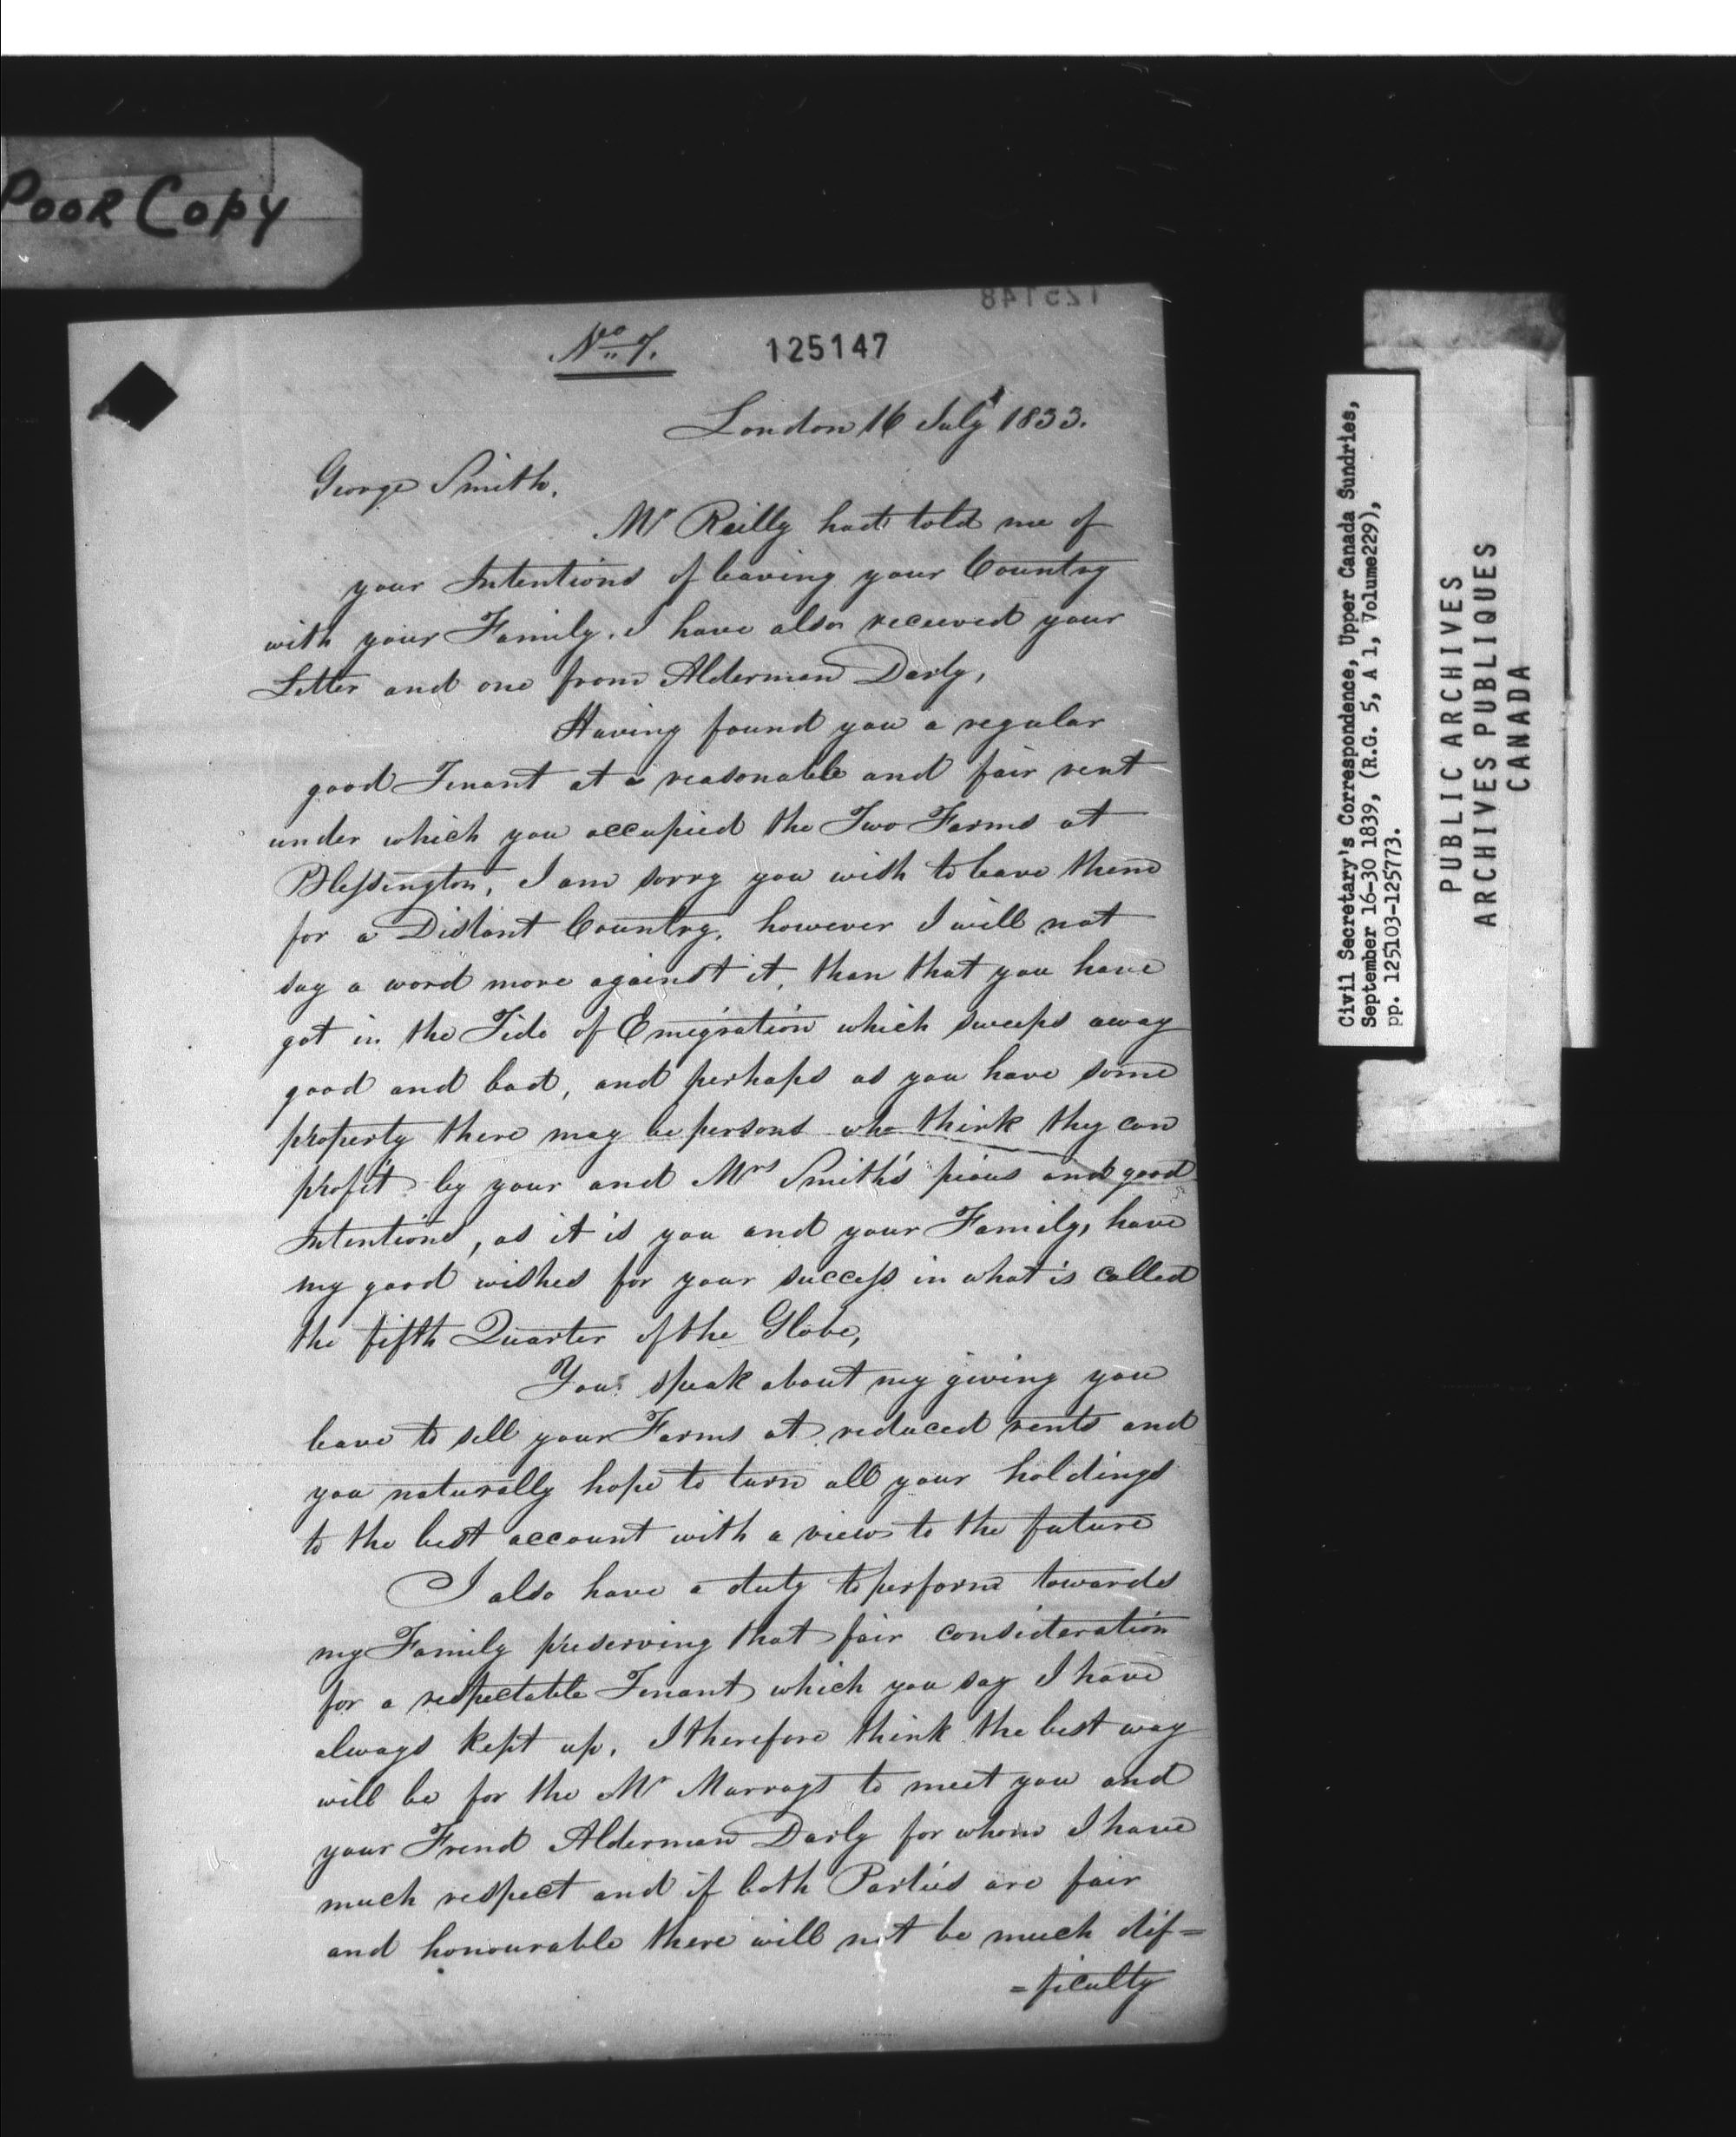 POOR COPY
125148
No 7.
125147
London 16 July 1833.
George Smith,
Mr Reilly had told me of
your Intentions of leaving your Country
with your Family, I have also received your
Letter and one from Alderman Darly,
Having found you a regular
good Tenant at a reasonable and fair rent
under which you occupied the Two Farms at
Blessington, I am sorry you wish to leave them
for a Distant Country, however I will not
say a word more against it, than that you have
got in the Tide of Emigration which sweeps away
good and bad, and perhaps as you have some
property there may be persons who think they can
profit by your and Mrs Smith's pious and good
Intentions, as it is you and your Family, have
my good wishes for your success in what is called
the fifth Quarter of the Globe,
You speak about my giving you
leave to sell your Farms at reduced rents and
you naturally hope to turn all your holdings
to the best account with a view to the future
I also have a duty to perform towards
my Family preserving that fair consideration
for a respectable Tenant which you say I have
always kept up, I therefore think the best way
will be for the Mr Murrays to meet you and
your Frend Alderman Darly for whom I have
much respect and if both Parties are fair
and honourable there will not be much dif=
=ficulty
Civil Secretary's Correspondence, Upper Canada Sundries,
September 16-30 1839, (R.G. 5, A 1, Volume229),
pp. 125103-125773.
PUBLIC ARCHIVES
ARCHIVES PUBLIQUES
CANADA